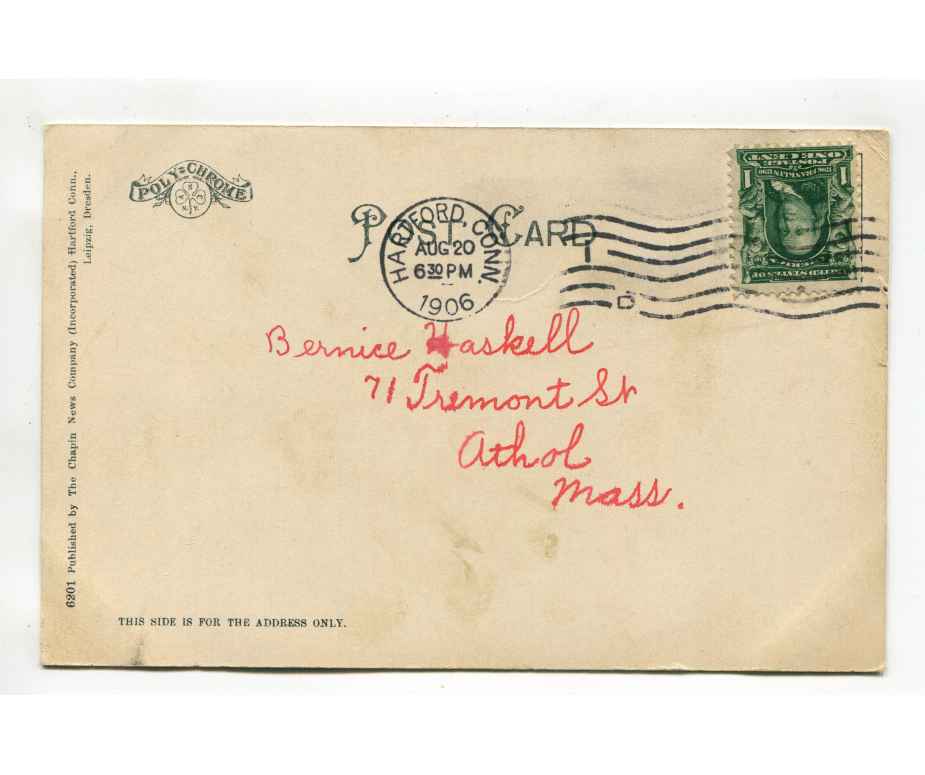 POLY=CHROME
POST CARD
HARTFORD, CONN.
AUG 20
6 30 PM
1906
D
ONE CENT
POSTAGE
1706 FRANKLIN 1790
1 1
UNITED STATES OF
Bernice Haskell
71 Tremont St
Athol
Mass.
THIS SIDE IS FOR THE ADDRESS ONLY.
6201 Published by The Chapin News Company (Incorporated) Hartford Conn.,
Leipzig, Dresden.